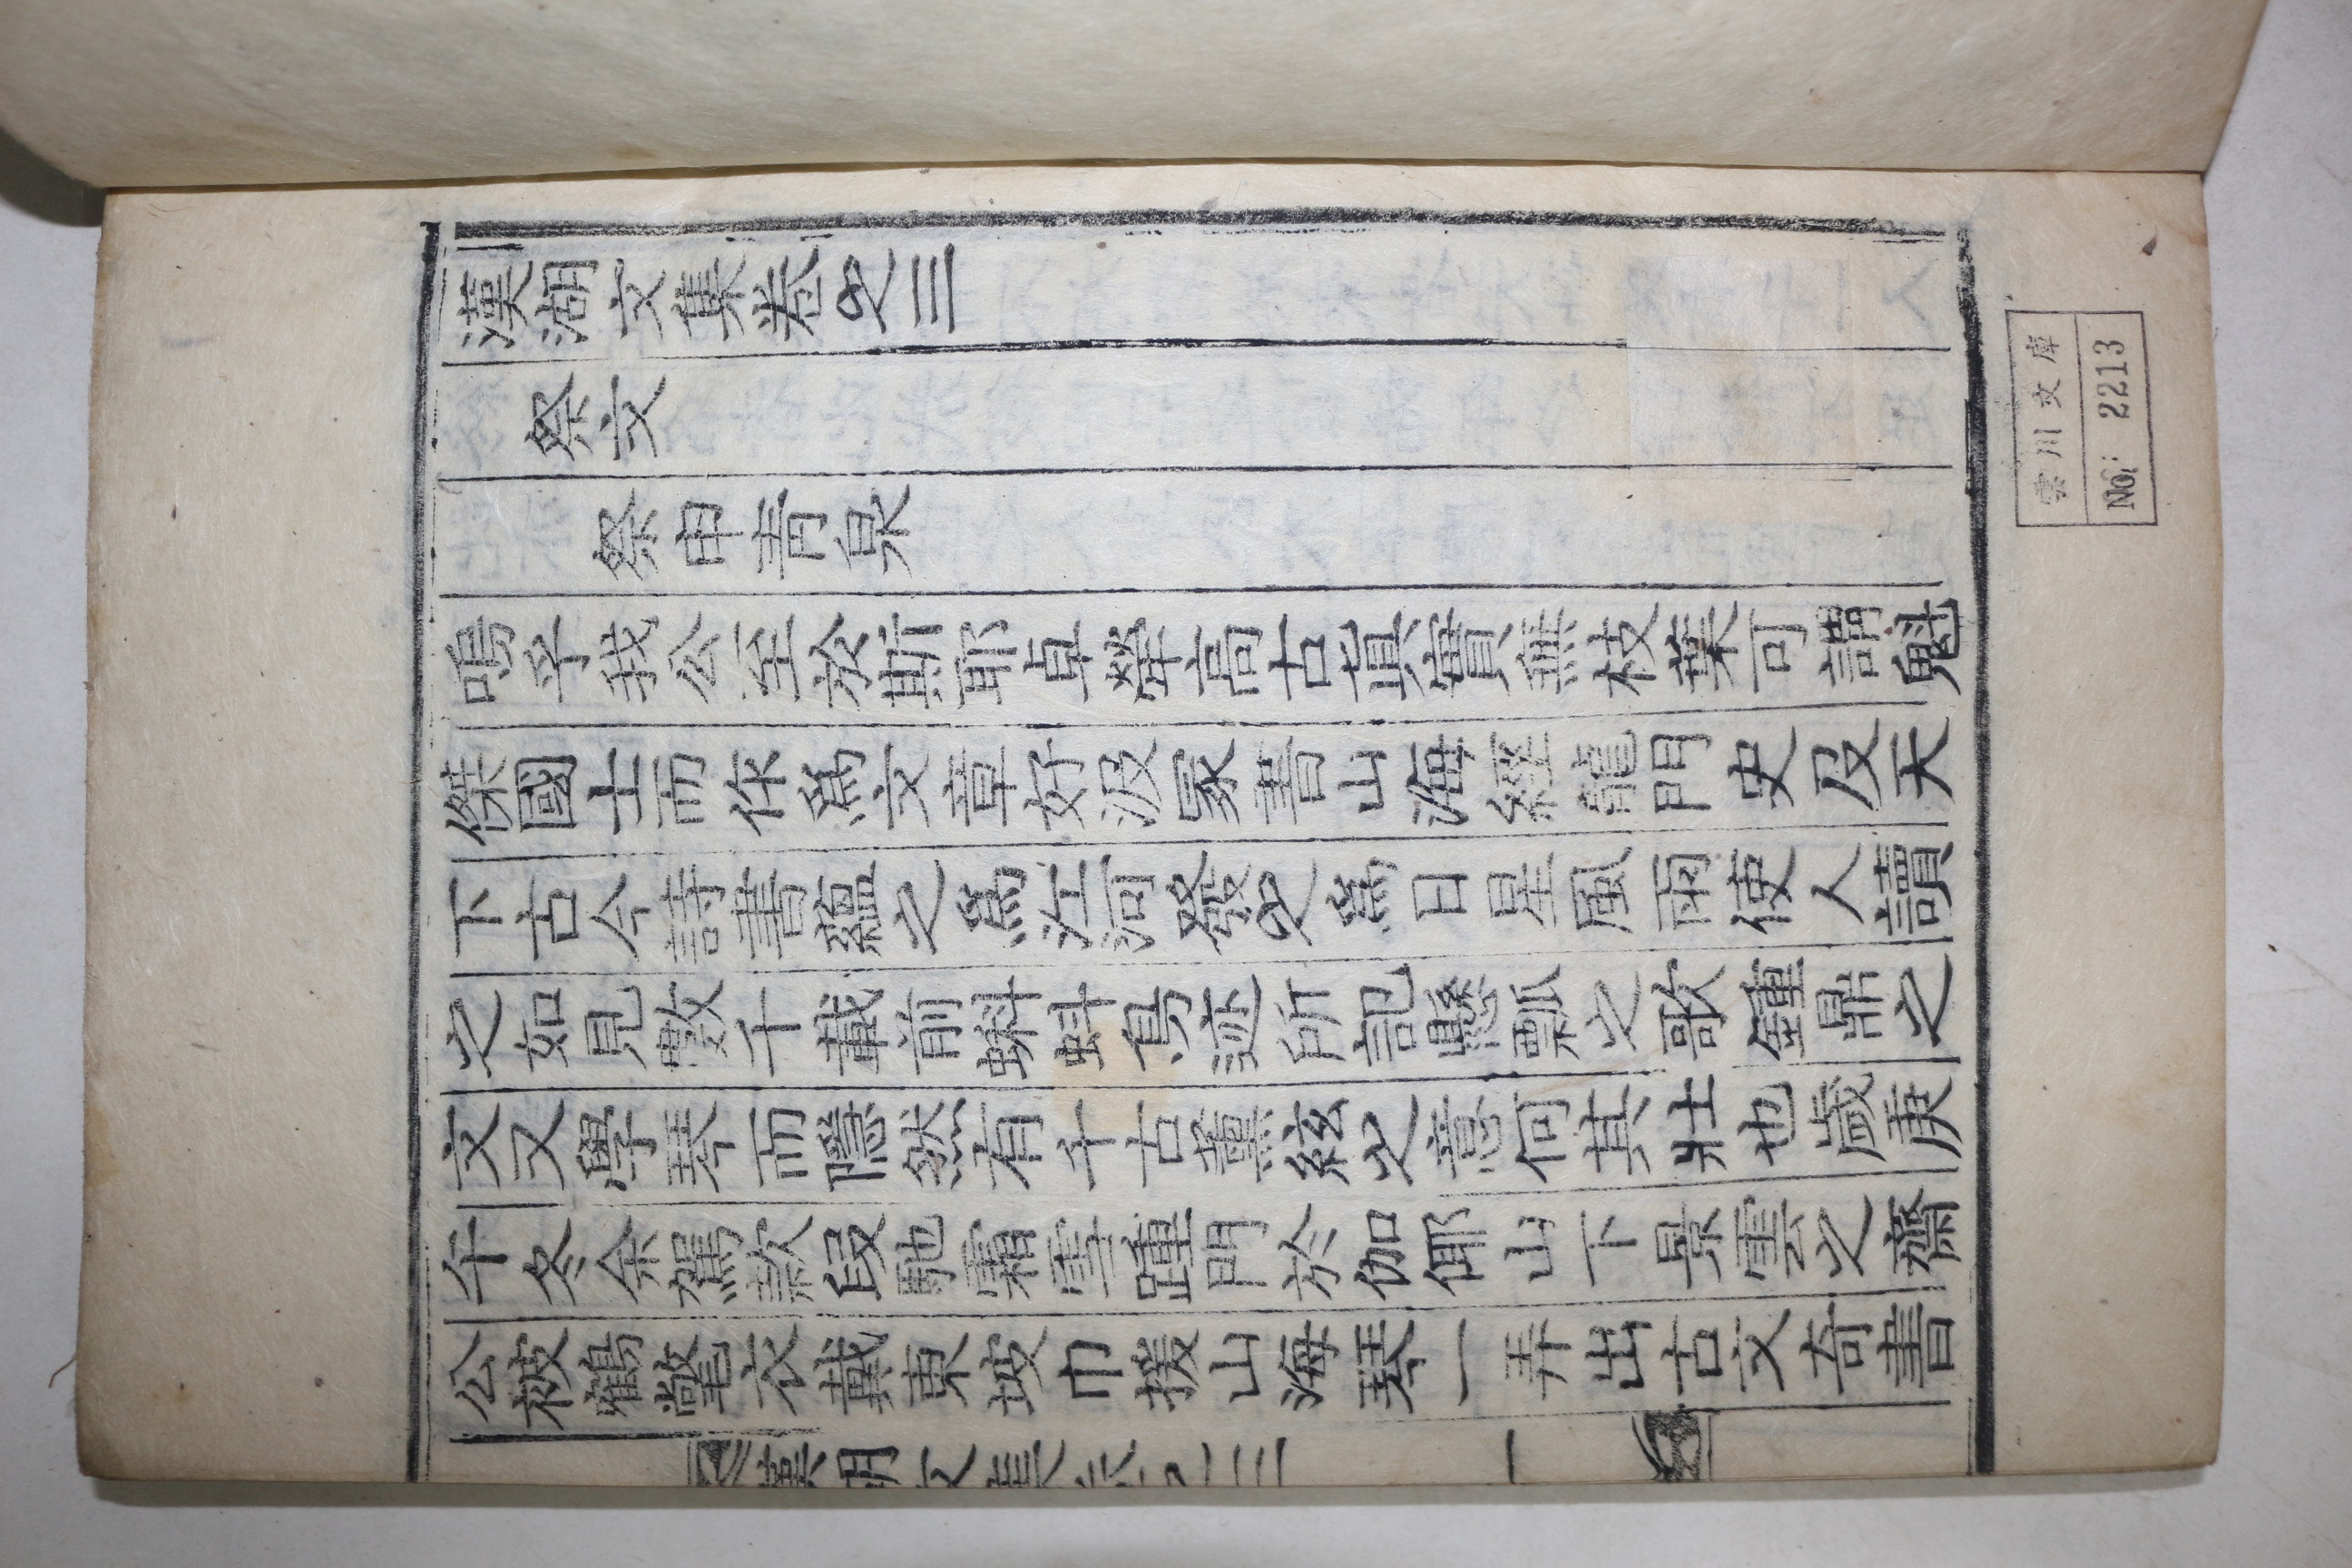 漢湖文集卷之三
祭文
祭申青泉
嗚乎我公至於斯耶卓犖高古眞實無枝葉可謂魁
傑國士而作爲文章好汲冢書山海經龍門史及天
下古今詩書蘊之爲江河發之爲日星風雨使人讀
之如見數千載前蝌蚪鳥迹所記懸瓢之歌鍾鼎之
文又學琴而隱然有千古薰絃之意何其壯也歲庚
午冬余駕款段馳霜雪踵門於伽倻山下景雲之齋
公被鶴氅衣戴東坡巾援山海琹一弄出古文奇書
漢湖文集卷之三 一
雲川文庫
No. 2213